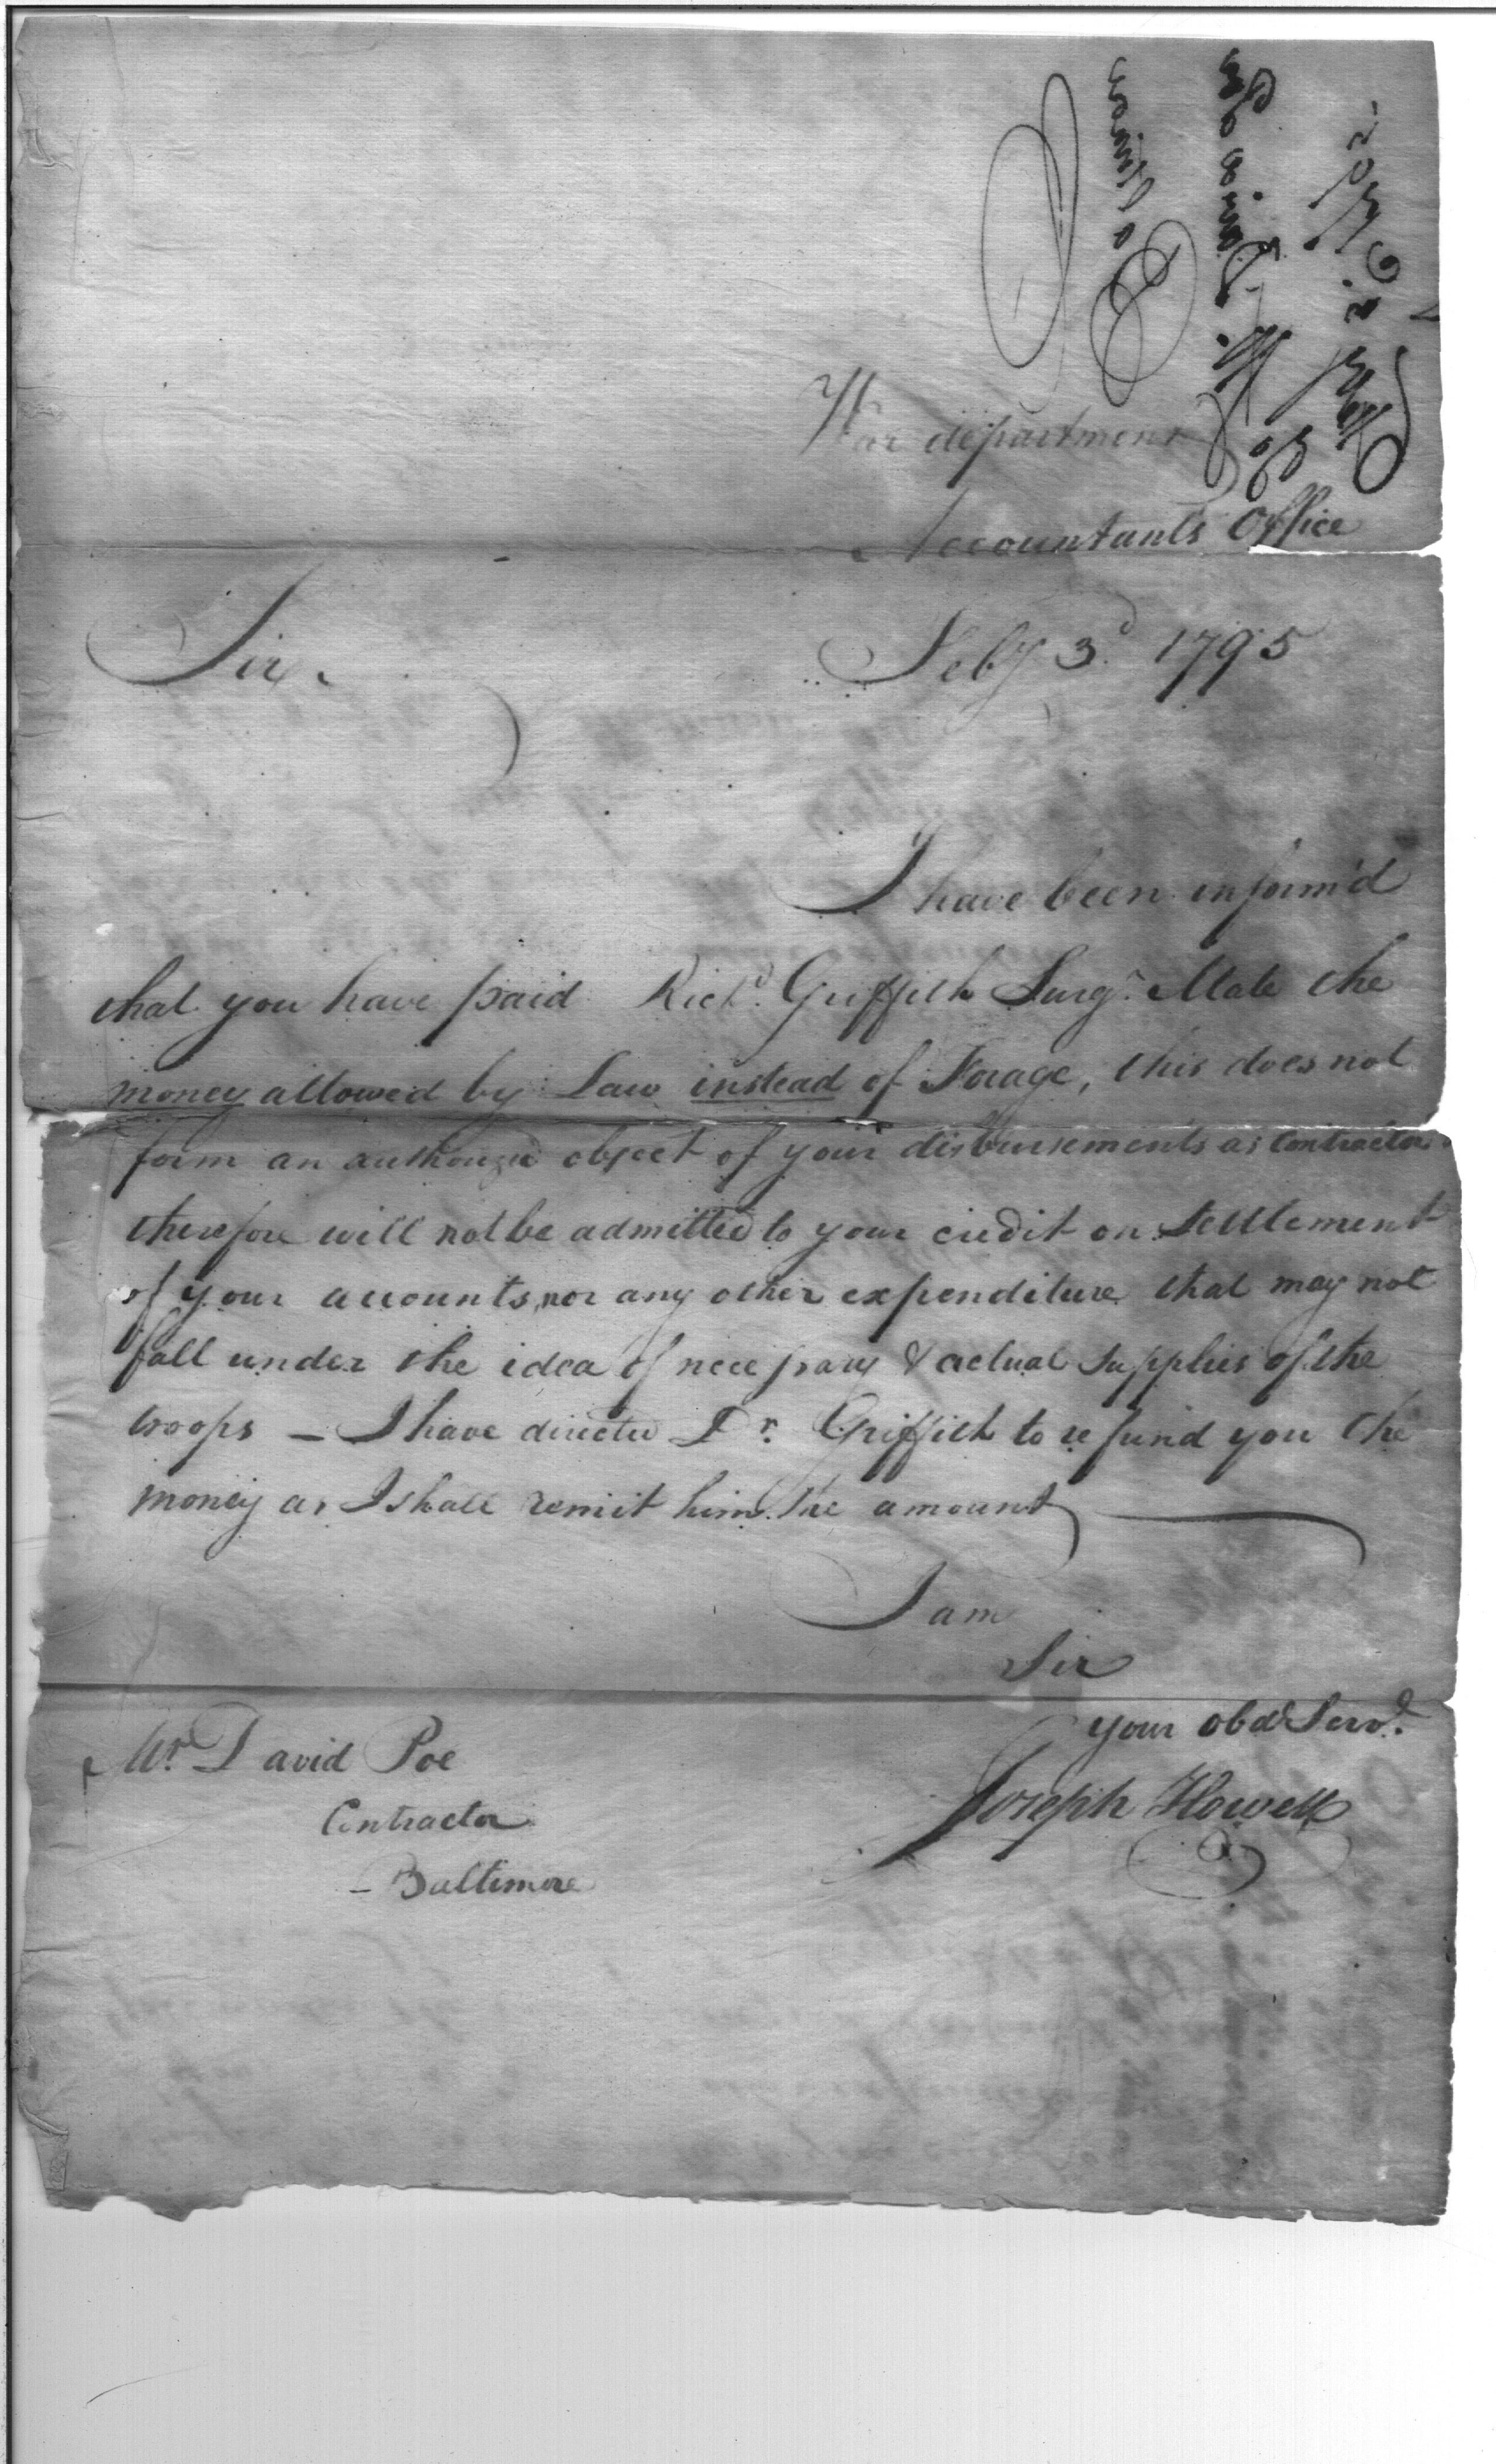 War department
Accountants Office
Sir. Feby 3d. 1795
I have been inform'd
that you have paid Richd. Griffith Surgs. Mate the
money allowed by Law instead of Forage, this does not
form an authorized object of your disbursements as Contractor
therefore will not be admitted to your credit on settlement
of your accounts, nor any other expenditure that may not
fall under the idea of necessary & actual supplies of the
troops — I have directed Dr. Griffith to refund you the
money as I shall remit him the amount
I am
Sir
your obdt Servt.
Joseph Howell
Mr. David Poe
Contractor
Baltimore
To
Mr. David Poe
Baltimore